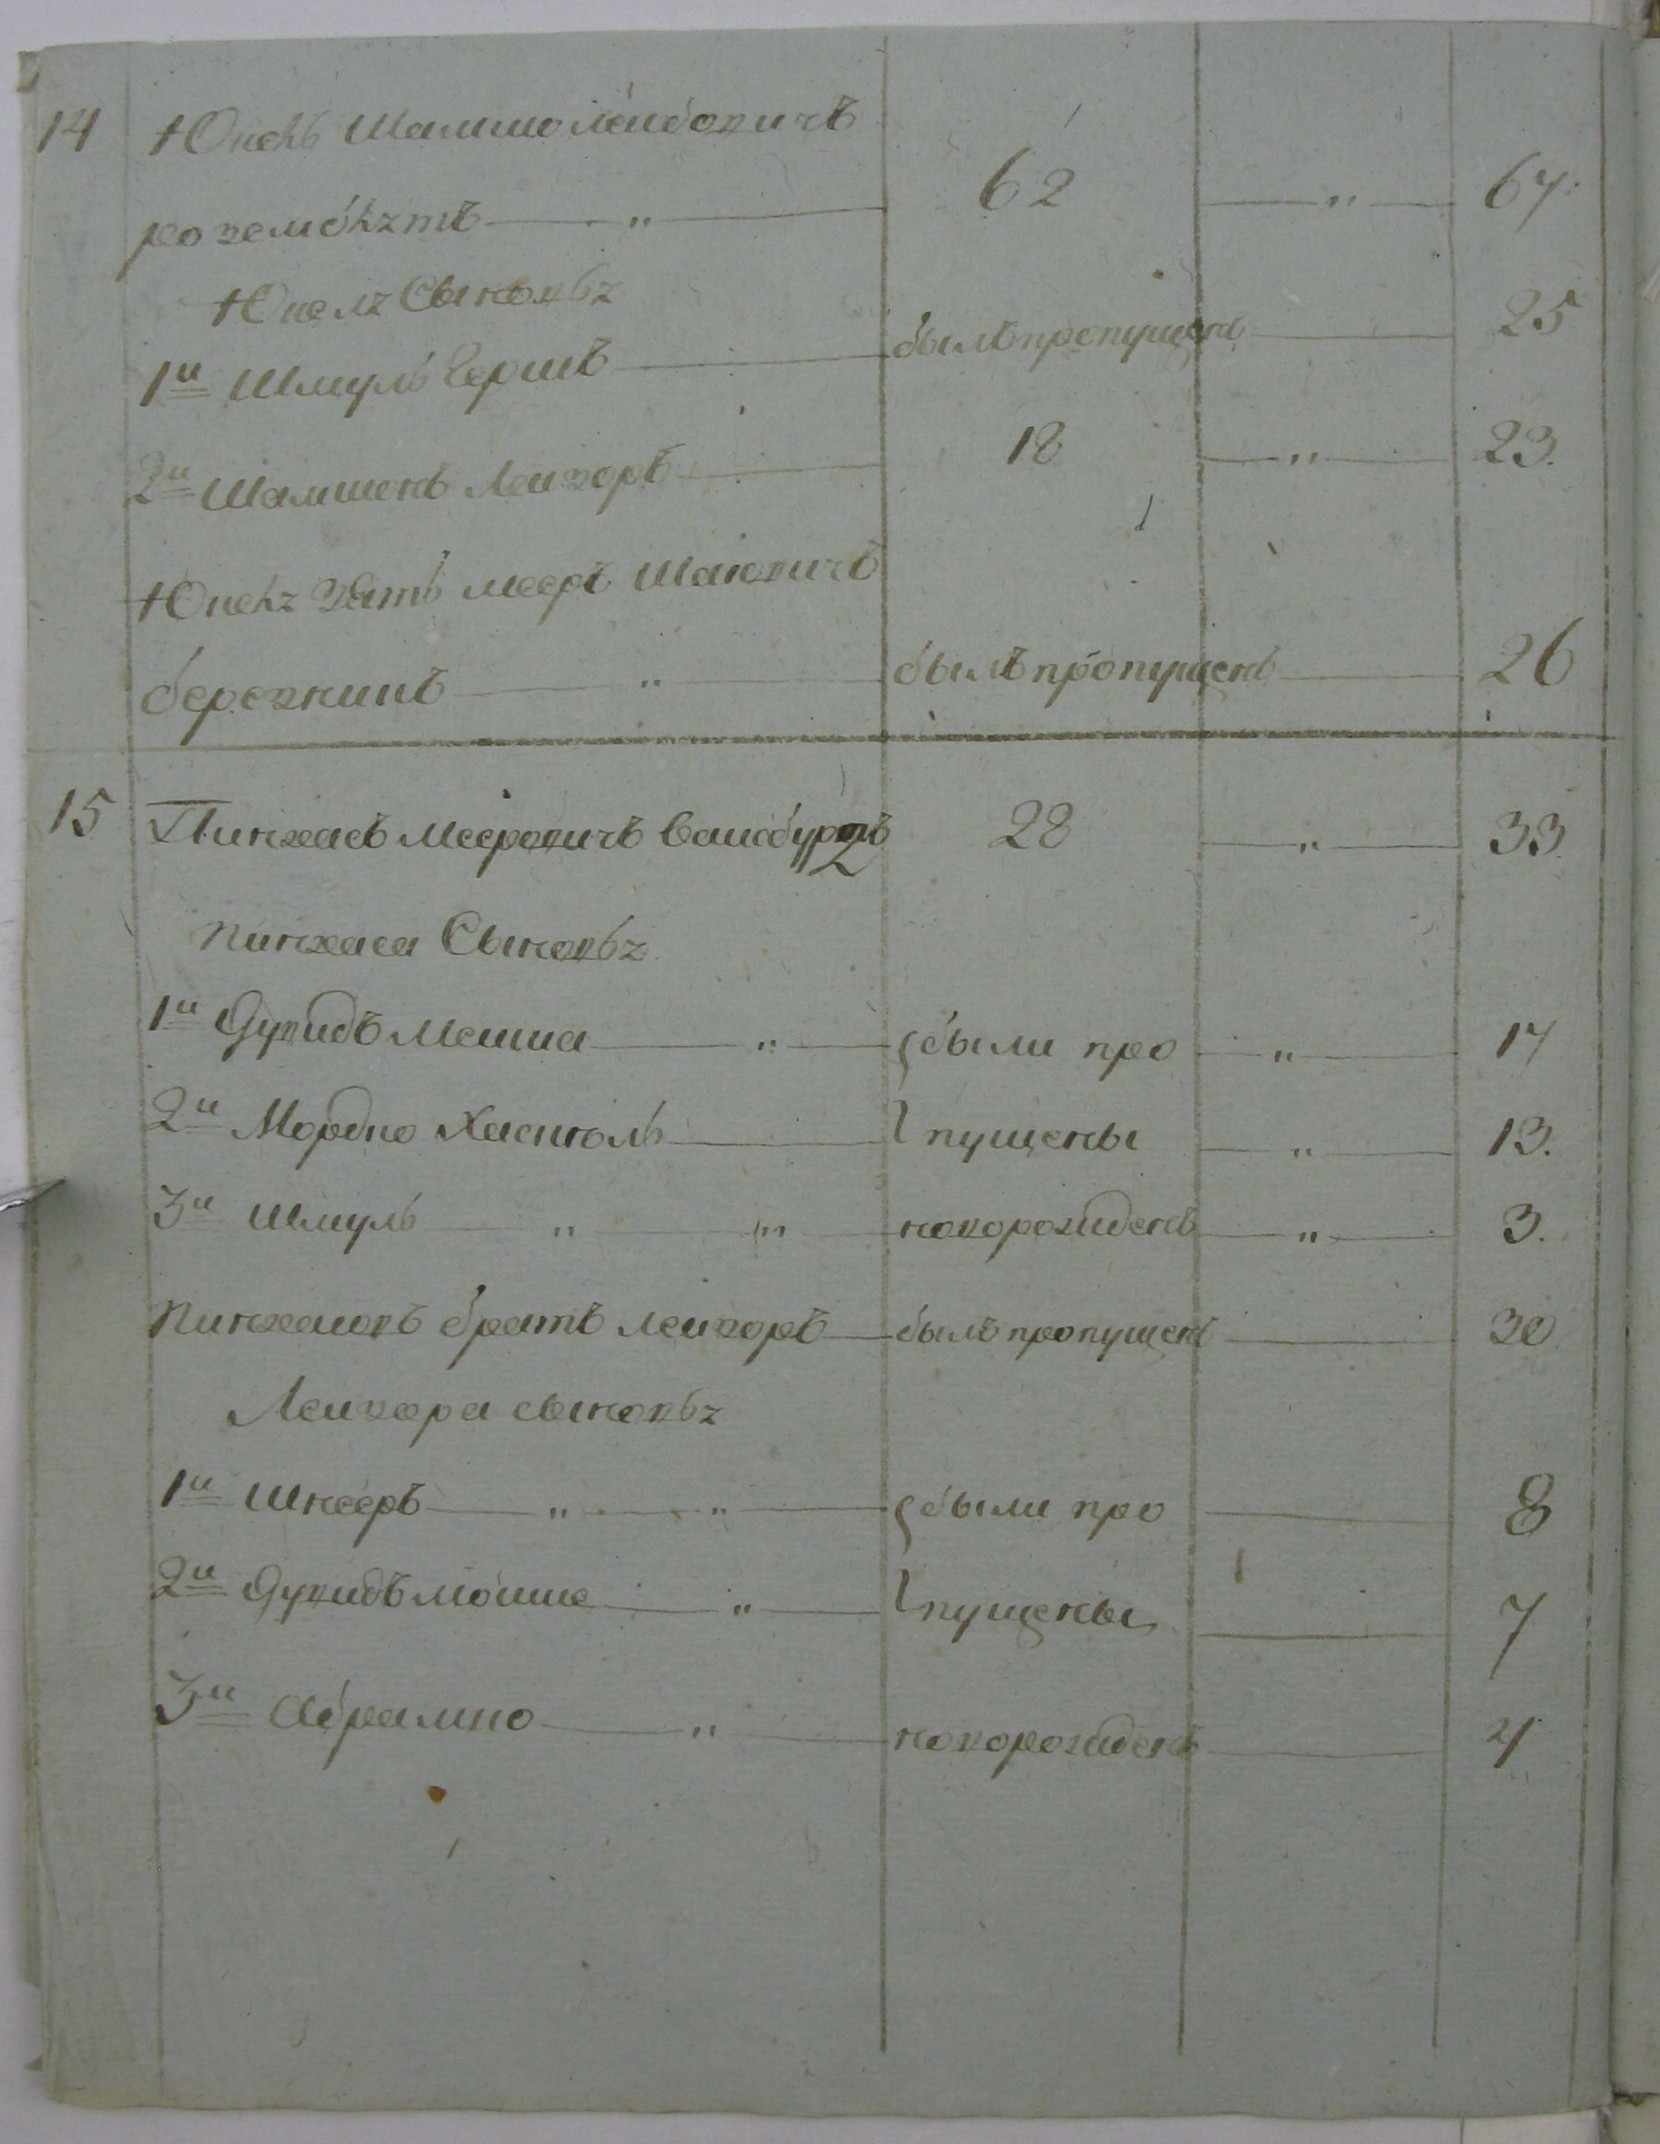 14 Юкель Шаишо Лейбовичъ
роземблатъ " 62 " 67.
Юкеля Сыновья
1й Шмуль Гершъ былъ пропущенъ 25
2й Шамшенъ Лейзоръ 18 " 23.
Юкеля Зять Мееръ Шаiовичъ
березкинъ " былъ пропущенъ 26
15 Пинхасъ Мееровичъ Вайсбургъ 28 " 33
Пинхаса Сыновья
1й Дувидъ Мейша " были про " 17
2й Мордко Хаскель пущены " 13.
3й Шмуль " " новорожденъ " 3.
Пинхасовъ братъ Лейзоръ былъ пропущенъ 30
Лейзора сыновья
1й Шнееръ " " были про 8
2й Дувидъ Мойше " пущены 7
3й Абрамко " новорожденъ 4